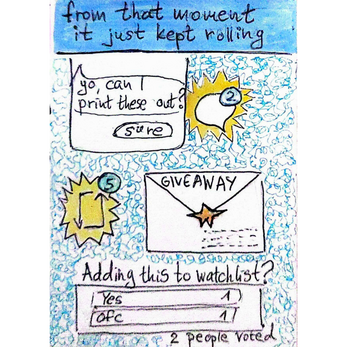 from that moment
it just kept rolling
yo, can I
print these out?
sure
2
5
GIVEAWAY
Adding this to watchlist?
Yes 1
ofc 1
2 people voted